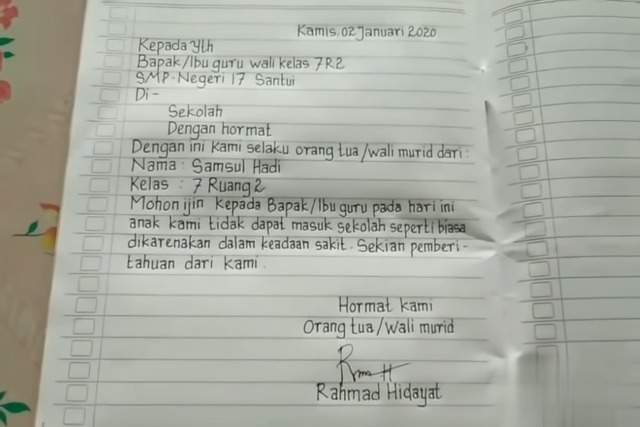 Kamis, 02 Januari 2020
Kepada Yth
Bapak/Ibu guru wali kelas 7R2
SMP. Negeri 17 Santui
Di -
Sekolah
Dengan hormat
Dengan ini kami selaku orang tua/wali murid dari :
Nama : Samsul Hadi
Kelas : 7 Ruang 2
Mohon ijin kepada Bapak/Ibu guru pada hari ini
anak kami tidak dapat masuk sekolah seperti biasa
dikarenakan dalam keadaan sakit. Sekian pemberi-
tahuan dari kami.
Hormat kami
Orang tua/wali murid
Rahmad Hidayat